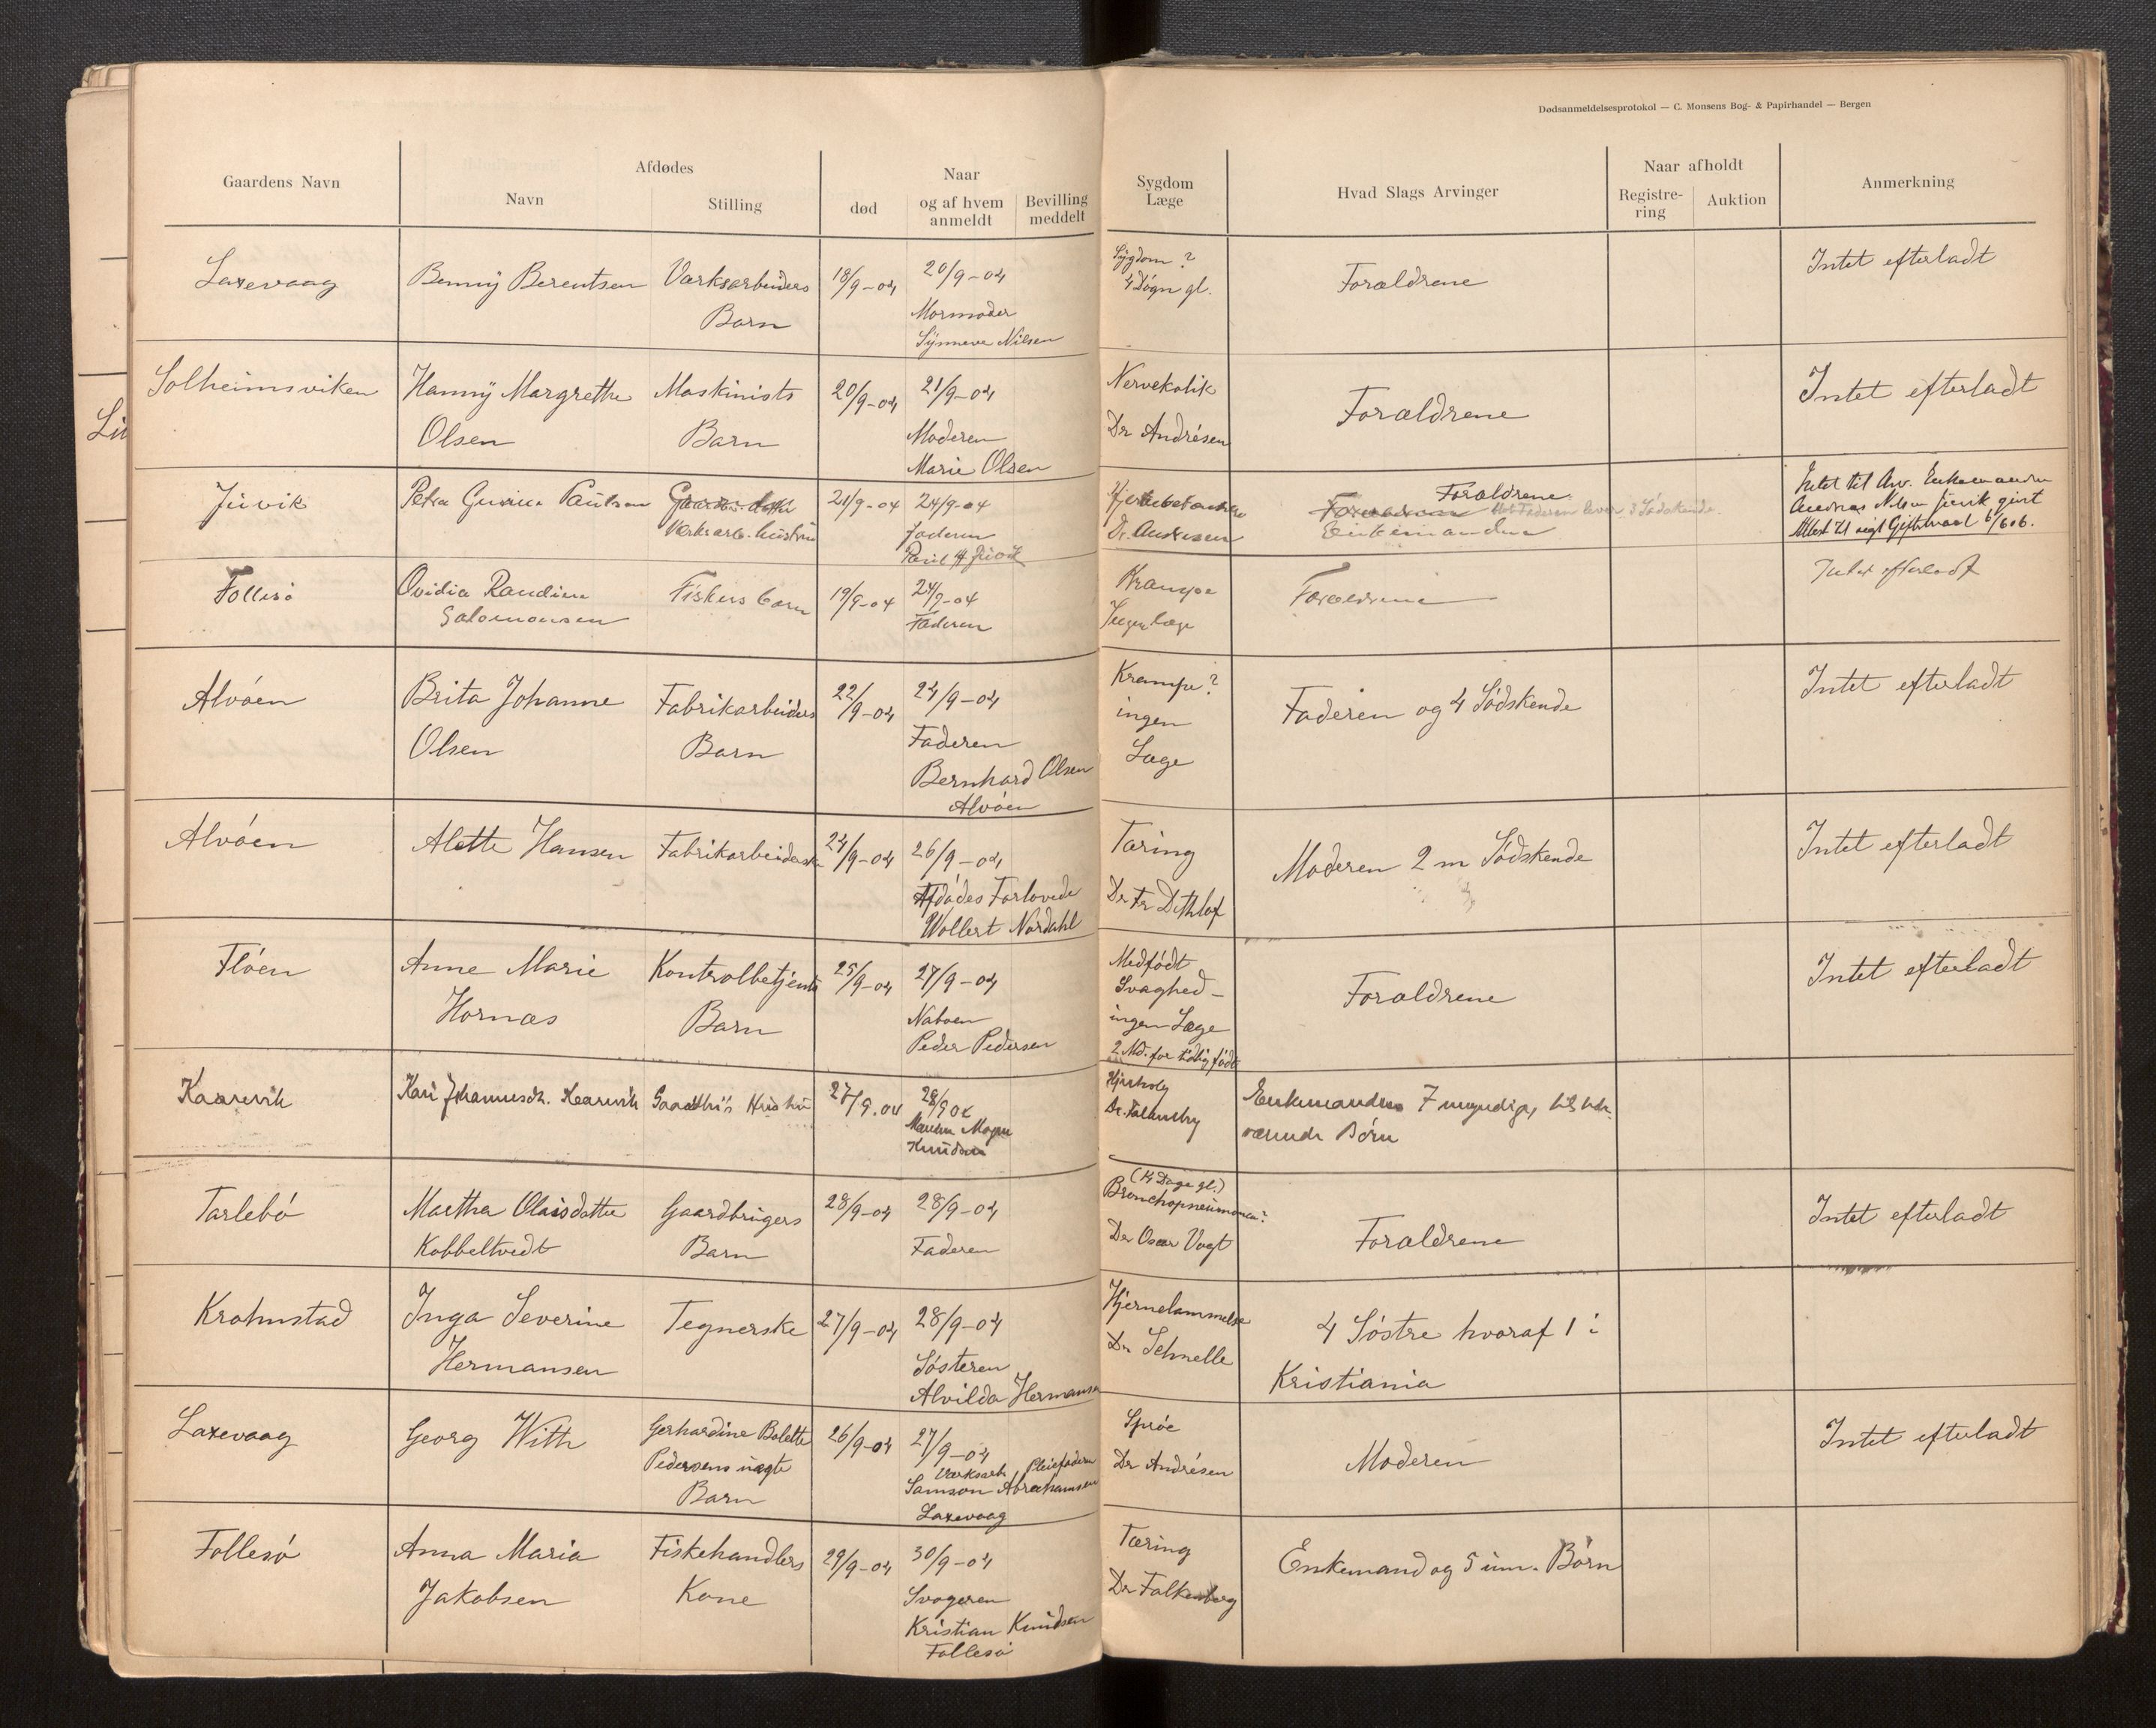 Dødsanmeldelsesprotokol — C. Monsens Bog- & Papirhandel — Bergen
Gaardens Navn
Afdødes
Navn
Stilling
død
Naar
og af hvem
anmeldt
Bevilling
meddelt
Sygdom
Læge
Hvad Slags Arvinger
Naar afholdt
Registre-
ring
Auktion
Anmerkning
Laxevaag
Benny Berentsen
Værksarbeiders
Barn
18/9-04
20/9-04
Mormoder
Synneve Nilsen
Sygdom ?
4 Døgn gl.
Forældrene
Intet efterladt
Solheimsviken
Hanny Margrethe
Olsen
Maskinists
Barn
20/9-04
21/9-04
Moderen
Marie Olsen
Nervekolik
Dr Andrésen
Forældrene
Intet efterladt
Juvik
Petra Gurine Paulson
Værksarb. hustru
21/9-04
24/9-04
Faderen
Paul H Juvik
Dr. Andresen
Forældrene
Enkemanden
3 Sødskende
Intet til Arv. Enkemanden
Andreas Nilsen Juvik givt
Follesø
Ovidia Randine
Salomonsen
Fiskers barn
19/9-04
24/9-04
Faderen
Krampe
Ingen læge
Forældrene
Intet efterladt
Alvøen
Brita Johanne
Olsen
Fabrikarbeiders
Barn
22/9-04
24/9-04
Faderen
Bernhard Olsen
Alvøen
Krampe?
ingen
Læge
Faderen og 4 Sødskende
Intet efterladt
Alvøen
Alette Hansen
Fabrikarbeiderske
24/9-04
26/9-04
Afdødes Forlovede
Wollert Nordahl
Tæring
Dr Fr Dethlof
Moderen 2 m Sødskende
Intet efterladt
Fløen
Anne Marie
Hornæs
Kontrolbetjents
Barn
25/9-04
27/9-04
Naboen
Peder Pedersen
Medfødt
Svaghed -
ingen Læge
2 Md. for tidlig født
Forældrene
Intet efterladt
Kaarevik
Kari Johannesdt. Kaarevik
Gaardbr's Hustru
27/9.04
28/9 04
Manden Mogn
Knudsen
Enkemanden 7 umyndige, tilstede-
værende Børn
Tarlebø
Martha Olaisdatter
Kobbeltvedt
Gaardbrugers
Barn
28/9-04
28/9-04
Faderen
(14 Dage gl.)
Bronchopneumonia?
Dr Oscar Vogt
Forældrene
Intet efterladt
Krohnstad
Inga Severine
Hermansen
Tegnerske
27/9-04
28/9-04
Søsteren
Alvilda Hermansen
Hjernelammelse
Dr Schnelle
4 Søstre hvoraf 1 i
Kristiania
Laxevaag
Georg With
Gerhardine Bolette
Pedersens uægte
Barn
26/9-04
27/9-04
Værksarb. Pleiefaderen
Samson Abrahamsen
Laxevaag
Sprøe
Dr Andrésen
Moderen
Intet efterladt
Follesø
Anna Maria
Jakobsen
Fiskehandlers
Kone
29/9-04
30/9-04
Svogeren
Kristian Knudsen
Follesø
Tæring
Dr Falkenberg
Enkemand og 5 um. Børn